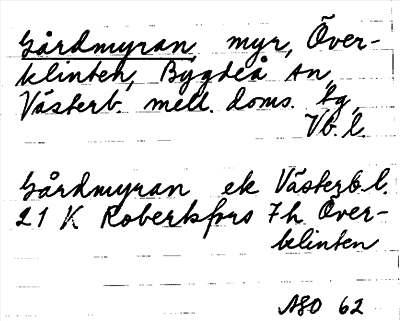 Gårdmyran, myr, Över-
klinten, Bygdeå sn,
Västerb. mell. doms. tg,
Vb. l.
Gårdmyran ek Västerb. l.
21 K Robertsfors 7h Över-
klinten
ASO 62